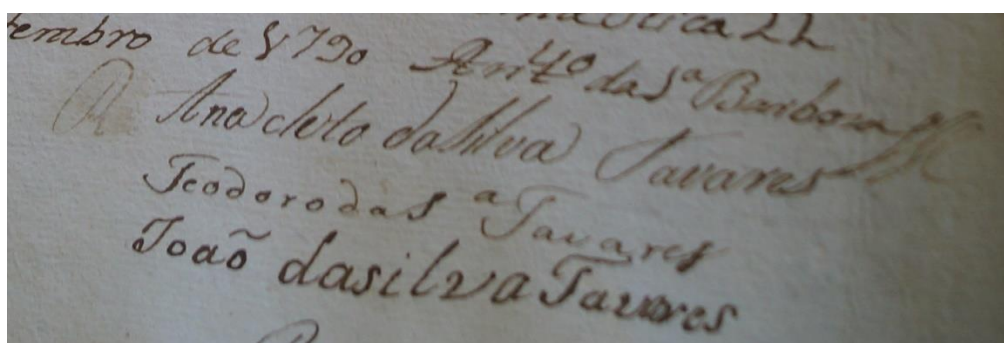 22
tembro de 1790 Ant.º da S.ª Barbosa
Anacleto da Silva Tavares
Teodoro da S.ª Tavares
João da silva Tavares